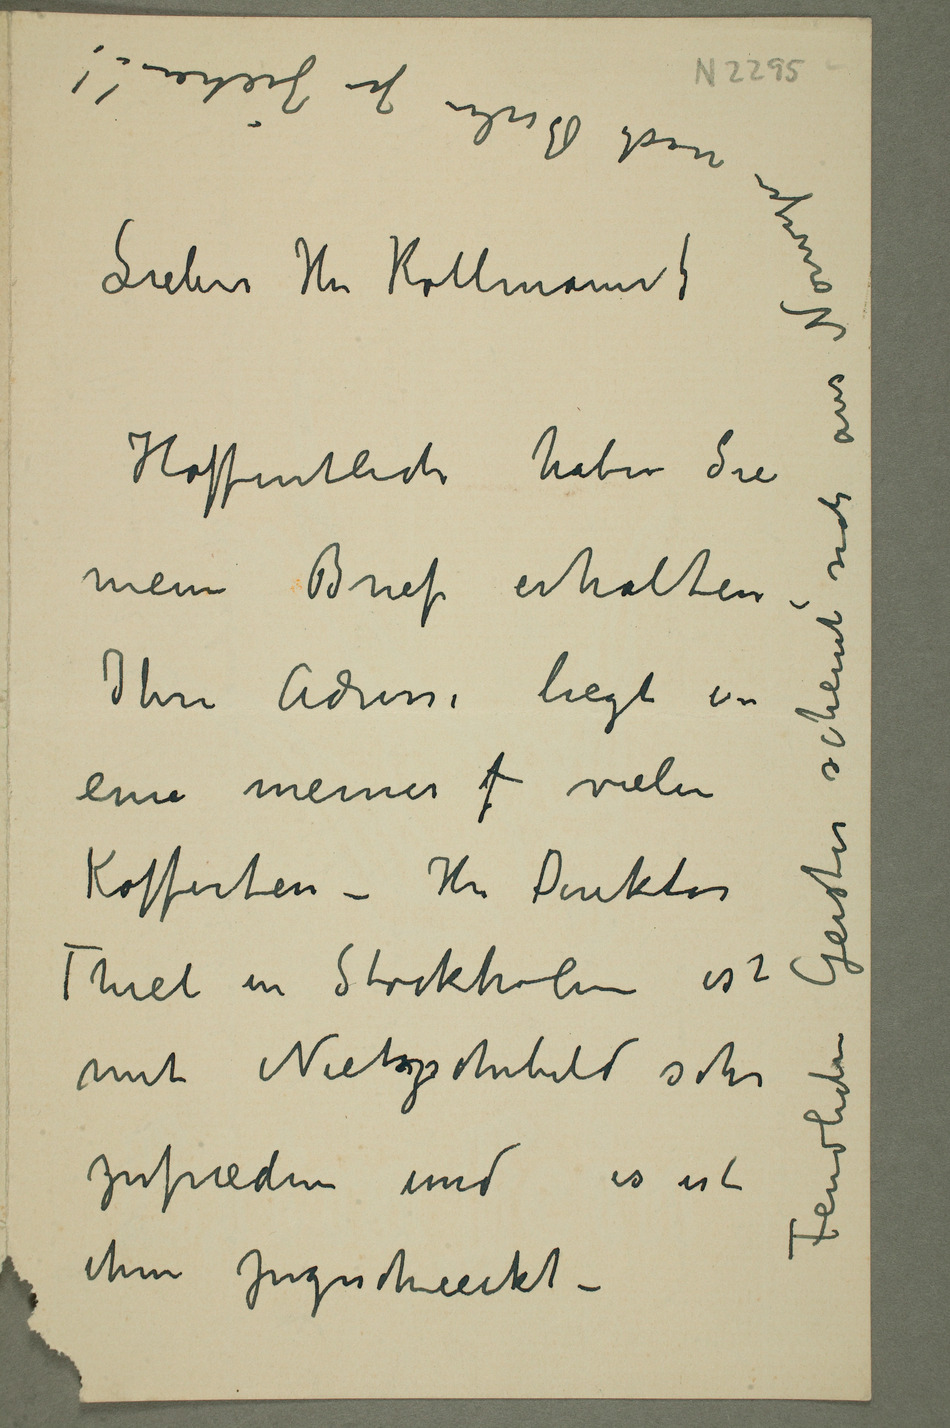 N 2295
Lieber Hr Kollmann!
Hoffentlich haben Sie
meinen Brief erhalten –
Ihre Adresse liegt in
einem meiner vielen
Kofferten – Hr Direktor
Thiel in Stockholm ist
mit Nietzschebild sehr
zufrieden und es ist
ihm zugeschickt –
Feindlichen Geister scheint mich aus Norwegen
nach zu ziehen!!